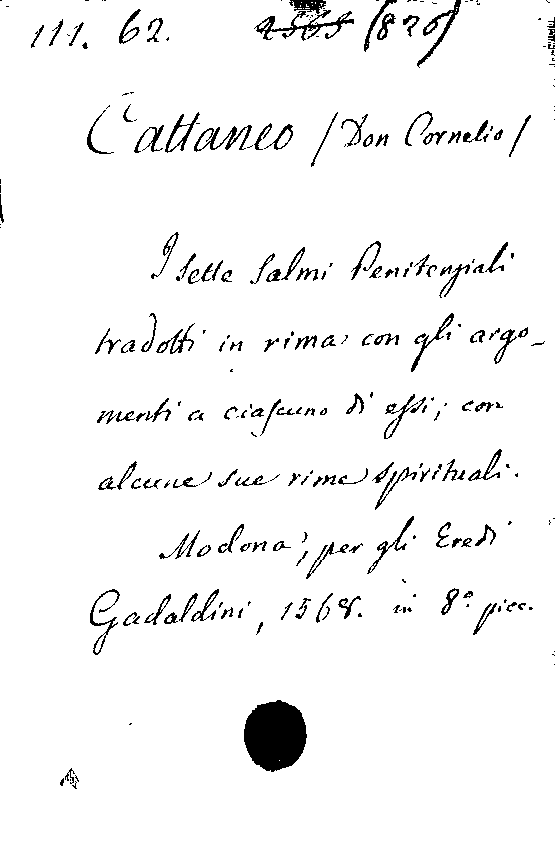 111. 62. 2565 (820)
Cattaneo / Don Cornelio /
I sette Salmi Penitenziali
tradotti in rima con gli argo-
menti a ciascuno di essi; con
alcune sue rime spirituali.
Modona, per gli Eredi
Gadaldini, 1568. in 8º picc.